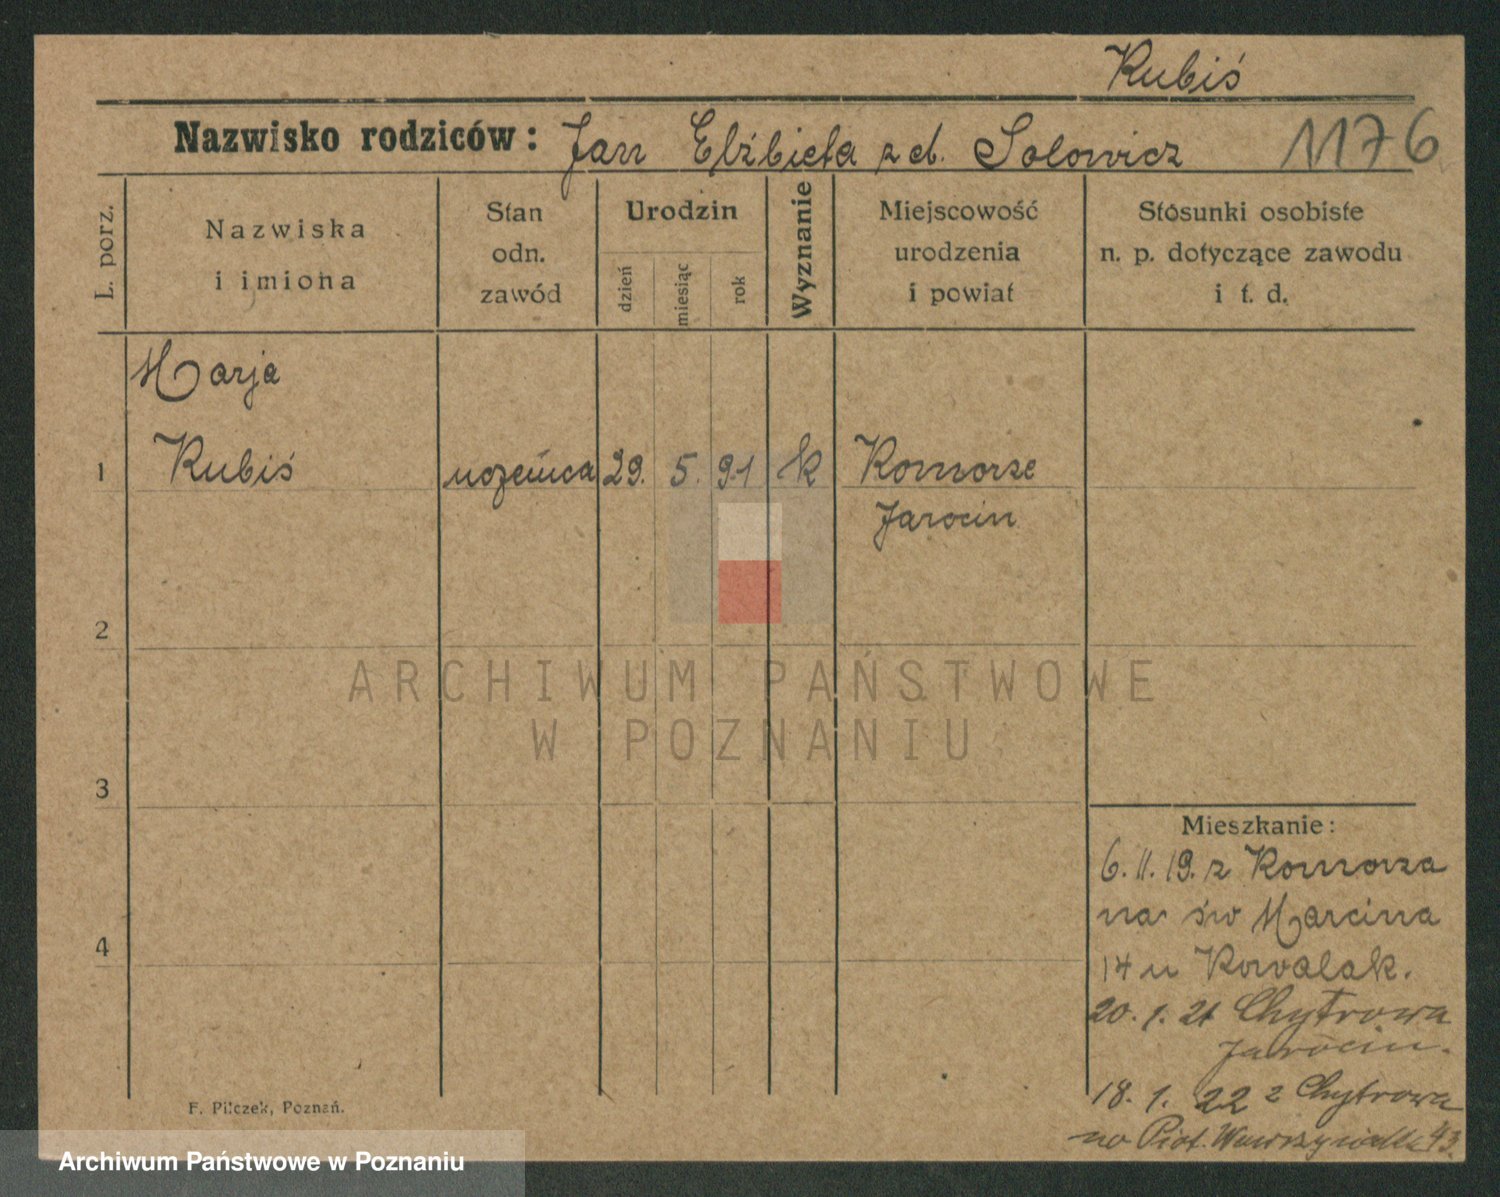 Kubiś
Nazwisko rodziców: Jan Elżbieta z d. Solowicz 1176
L. porz.
Nazwiska i imiona
Stan odn. zawód
Urodzin
dzień
miesiąc
rok
Wyznanie
Miejscowość urodzenia i powiat
Stosunki osobiste n. p. dotyczące zawodu i t. d.
Marja
1 Kubiś uczeńica 29. 5. 91 k Komorze
Jarocin
2
ARCHIWUM PAŃSTWOWE
W POZNANIU
3
Mieszkanie:
6. II. 19. z Komorza
na św Marcina
4
14 u Kowalak.
20. 1. 21 Chytrowa
Jarocin.
18. 1. 22 z Chytrowa
na Piot. Wawrzyniaka 43.
F. Pilczek, Poznań.
Archiwum Państwowe w Poznaniu